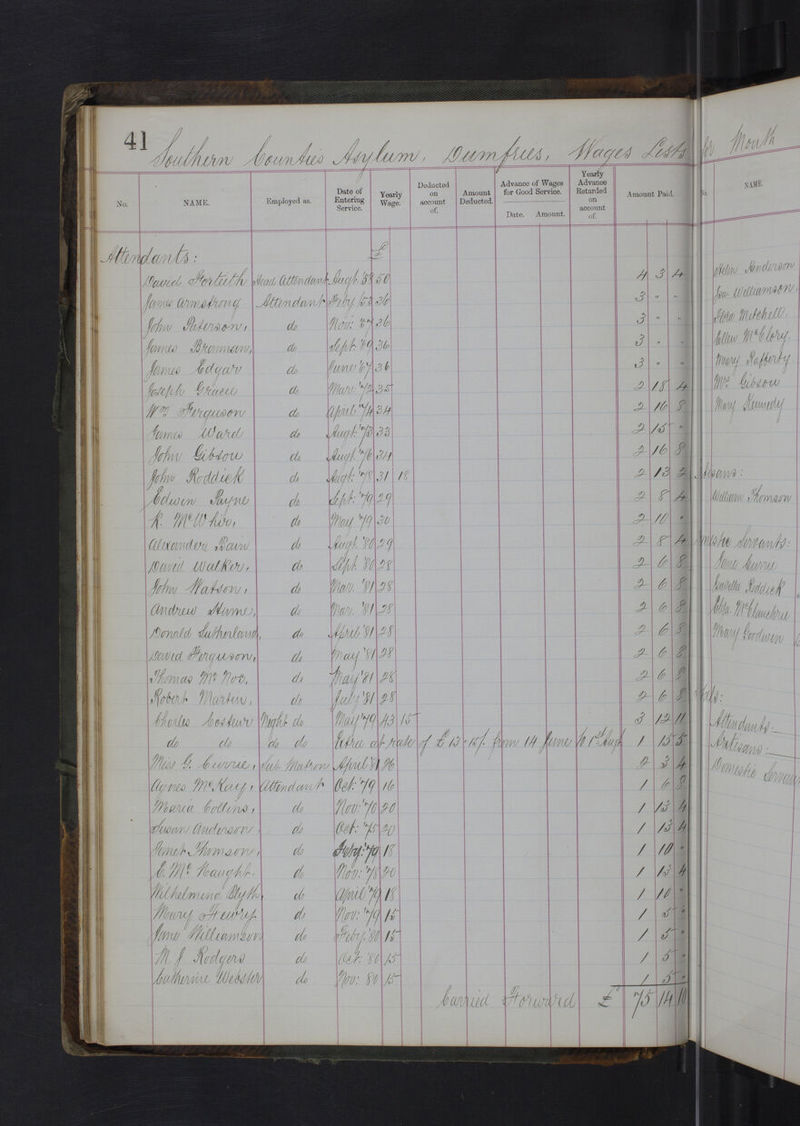 41
Southern Counties Asylum, Dumfries, Wages Lists for Month
No. NAME. Employed as. Date of Entering Service. Yearly Wage. Deducted on account of. Amount Deducted. Advance of Wages for Good Service. Date. Amount. Yearly Advance Retarded on account of. Amount Paid. NAME.
Attendants: £
David Porteith Head Attendant Augt. 50 4 3 4
James Armstrong Attendant Feby 36 3 - -
John Paterson, do Nov: 67 36 3 - -
James Brannan, do Sept. 36 3 - -
James Edgar do June 67 36 3 - -
Joseph Gracie do Mar: 72 35 2 18 4
Wm Ferguson do April 74 34 2 16 8
James Ward do Augt. 33 2 15 -
John Gibson do Augt. 76 34 2 16 8
John Roddick do Augt. 78 31 18 2 13 2
Edwin Payne do Sept. 79 29 2 8 4
R. McWhir, do May 79 30 2 10 -
Alexander Bain do Augt. 80 29 2 8 4
David Walker, do Sept. 80 28 2 6 8
John Watson, do Mar. '81 28 2 6 8
Andrew Hume, do Mar. '81 28 2 6 8
Donald Sutherland, do April '81 28 2 6 8
David Ferguson, do May '81 28 2 6 8
Thomas do May '81 28 2 6 8
Robert Martin, do July '81 28 2 6 8
Charles Night do May '79 43 15 3 12 11
do do do do Extra at rate of £13-15/- from 14 June to 1st Augt 1 15 5
Miss G. Currie, Sub Matron April 81 26 2 3 4
Agnes McKay, Attendant Oct: '79 16 1 6 8
Maria Collins, do Nov: '70 20 1 13 4
Susan Anderson do Oct: '75 20 1 13 4
Janet Thomson, do Feby: 79 18 1 10 -
E. McNaught. do Nov: '78 20 1 13 4
Wilhelmina Blyth, do April '79 18 1 10 -
Mary do Nov: '79 15 1 5 -
Jane Williamson do Feby. '80 15 1 5 -
M. J. Rodgers do Oct: '80 15 1 5 -
Catherine Webster do Nov: 80 15 1 5 -
Carried Forward £ 75 14 10
Helen Henderson
Williamson,
Mitchell
Ellen McClory
Mary Rafferty
Mrs Gibson
Mary Kennedy
William Thomson
Servants:
Jane Currie
Isabella Roddick
Mary Goodwin
Attendants
Artesans
Domestic Servants